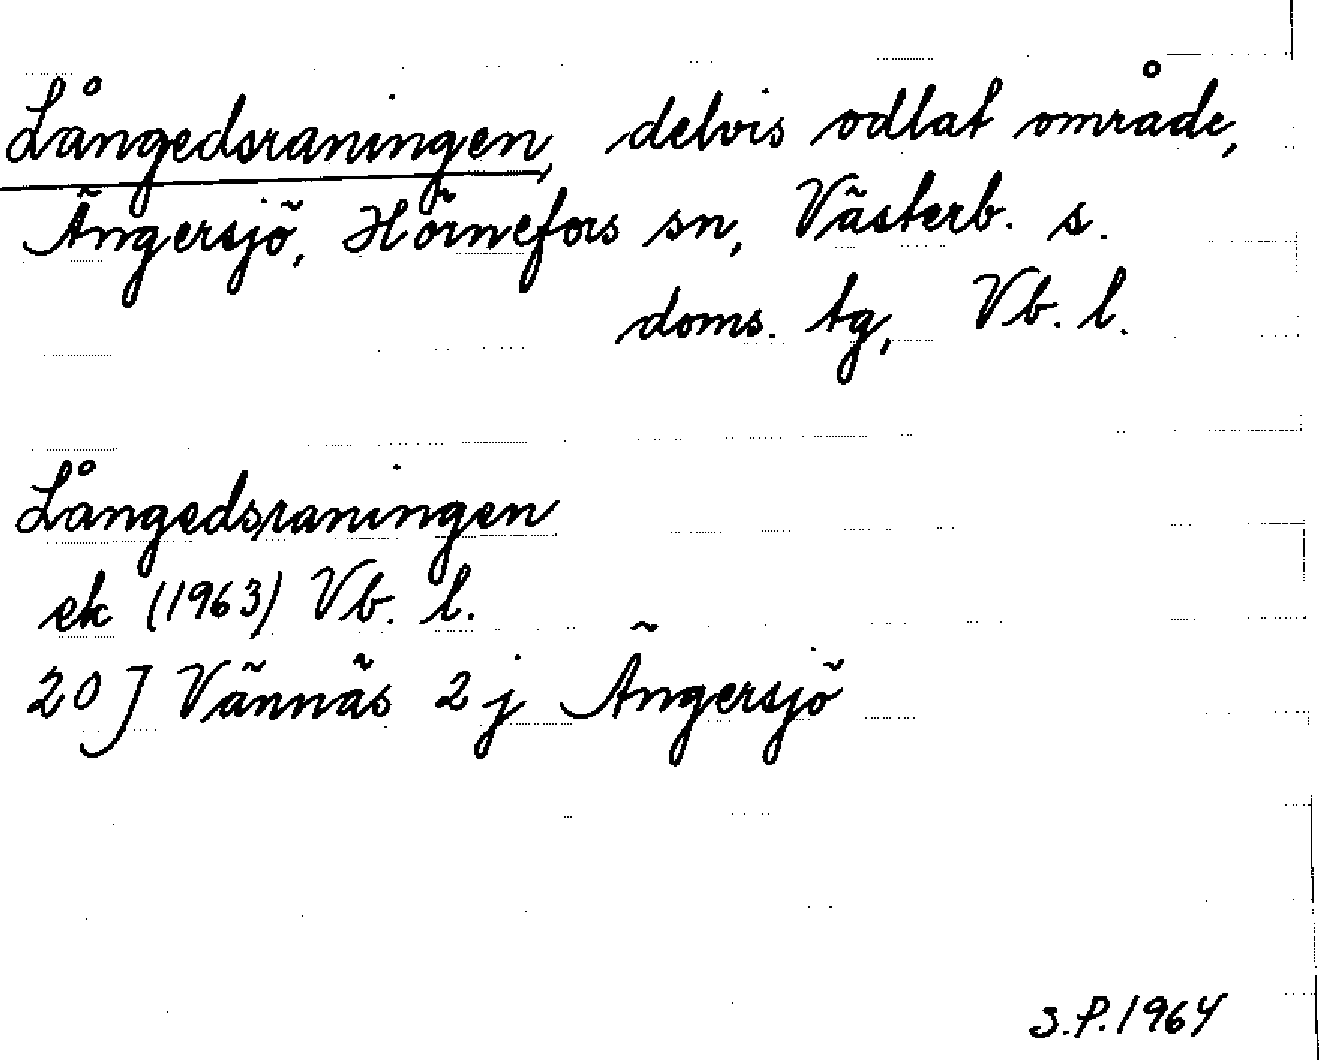 Långedsraningen, delvis odlat område,
Ängersjö, Hörnefors sn, Västerb. s.
doms. tg, Vb. l.
Långedsraningen
ek (1963) Vb. l.
20 J Vännäs 2 j Ängersjö
S.P. 1964